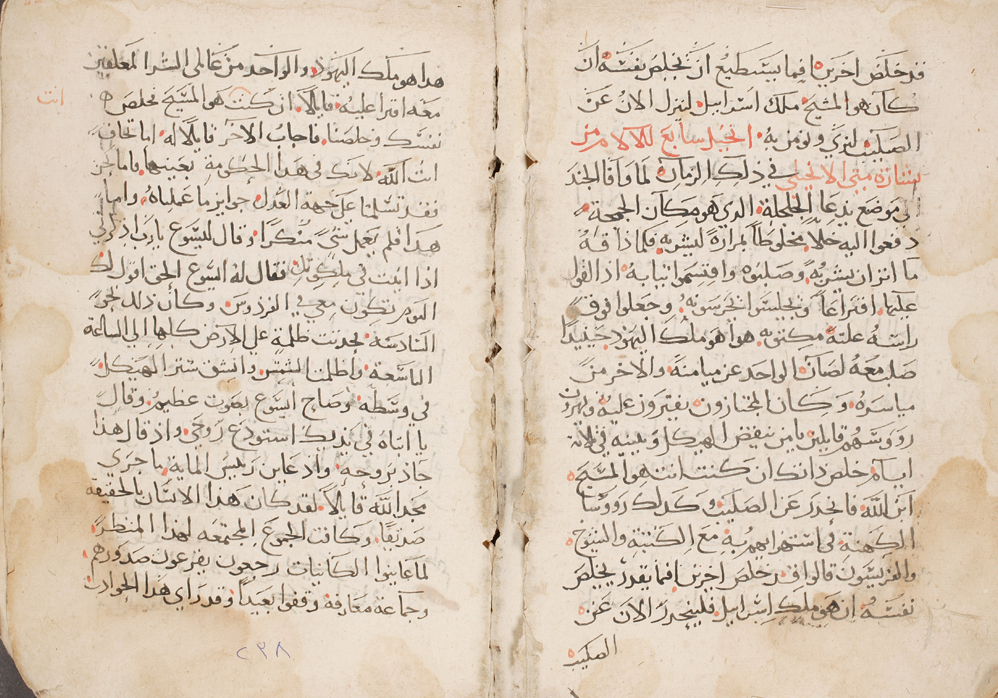 قد خلص اخرين افما يستطيع ان يخلص نفسه ان
كان هو المسيح ملك اسرايل لينزل الان عن
الصليب لنرى ونومن به انجيل سابع للالام من
بشارة متي الانجيلي في ذلك الزمان لما وافا الجند
الي موضع يدعا الجلجلة الذي هو مكان الجمجمة
دفعوا اليه خلا مخلوطا بمرارة ليشربه فلما ذاقه
ما اثر ان يشربه وصلبوه واقتسموا ثيابه اذ القوا
عليها اقتراعا وجلسوا يحرسونه وجعلوا فوق
راسه علته مكتوبه هوا هو ملك اليهود حينيدا
صلب معه لصان الواحد عن ميامنه والاخر من
مياسره وكان المجتازون يفترون عليه ويهزون
رووسهم قايلين يا من ينقض الهيكل ويبنيه في ثلاثة
ايام خلص ذاتك ان كنت انت هو المسيح
ابن الله فانحدر عن الصليب وكدلك رووسا
الكهنة في استهزايهم به مع الكتبة والشيوخ
والفريسيون قالوا قد خلص اخرين افما يقدر يخلص
نفسه ان هو ملك اسرايل فلينحدر الان عن
الصليب
هدا هو ملك اليهود والواحد من عاملي الشر المعلقين
معه افترا عليه قايلا ان كنت هو المسيح خلص
انت
نفسك وخلصنا فاجاب الاخر قايلا له اما تخاف
انت الله لانك في هذا الحكومة بعينها فاما نحن
فقد تسلمنا على جهة العدل جوايز ما عملناه واما
هدا فلم يعمل شي منكرا وقال ليسوع يارب اذكرني
اذا اتيت في ملكوتك فقال له ايسوع الحق اقول لك
اليوم تكون معي في الفردوس وكان ذلك نحو
السادسة فحدثت ظلمه علي الارض كلها الي الساعة
التاسعة واظلمت الشمس وانشق ستر الهيكل
في وسطه وصاح ايسوع بصوت عظيم وقال
يا ابتاه في يديك استودع روحي واذ قال هدا
جاد بروحه واد عاين رييس الماية ما جري
مجد الله قايلا لقد كان هدا الانسان بالحقيقه
صديقا وكافت الجموع المجتمعه لهذا المنظر
لما عاينوا الكاينات رجعون يقرعون صدورهم
وجماعة معارفه وقفوا بعيدا وقد راي هدا الحوادث
٢٣٨